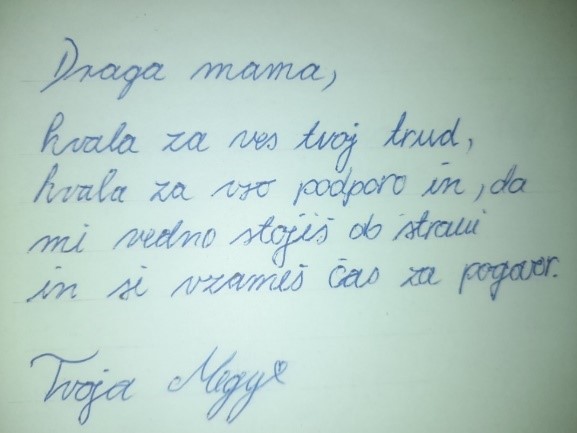 Draga mama,
hvala za ves tvoj trud,
hvala za vso podporo in, da
mi vedno stojiš ob strani
in si vzameš čas za pogovor.
Tvoja Megy